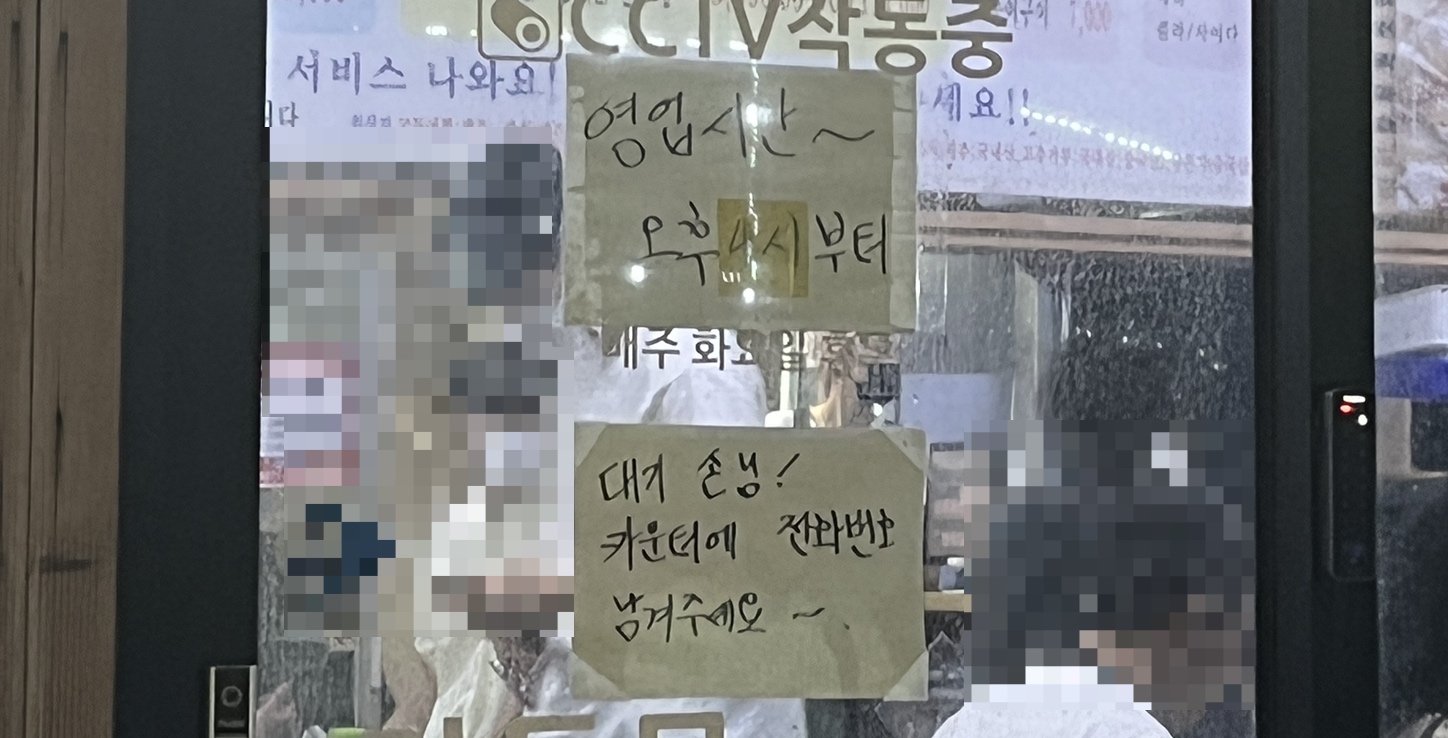 CCTV작동중
서비스 나와요!
세요!!
영업시간~
오후4시부터
매주 화요일 휴무
대기 손님!
카운터에 전화번호
남겨주세요~.